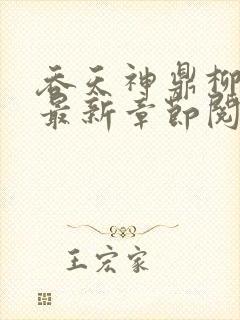 吞天神鼎柳
最新章节阅
王宏家